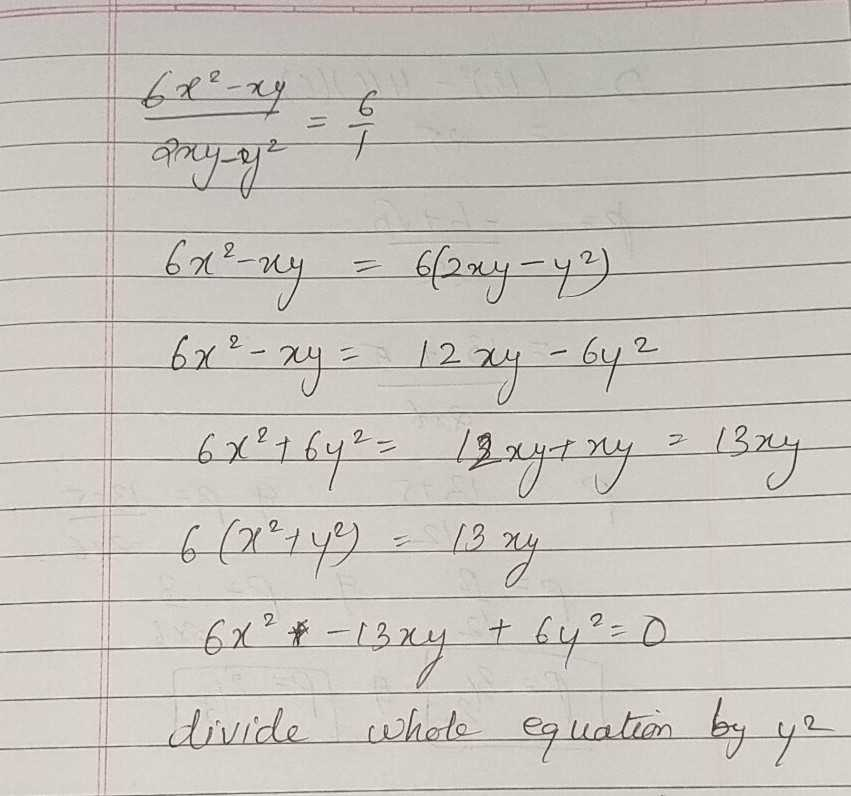 6x²-xy / 2xy-y² = 6/1
6x²-xy = 6(2xy-y²)
6x²-xy = 12xy-6y²
6x²+6y² = 12xy+xy = 13xy
6(x²+y²) = 13xy
6x² -13xy + 6y²=0
divide whole equation by y²